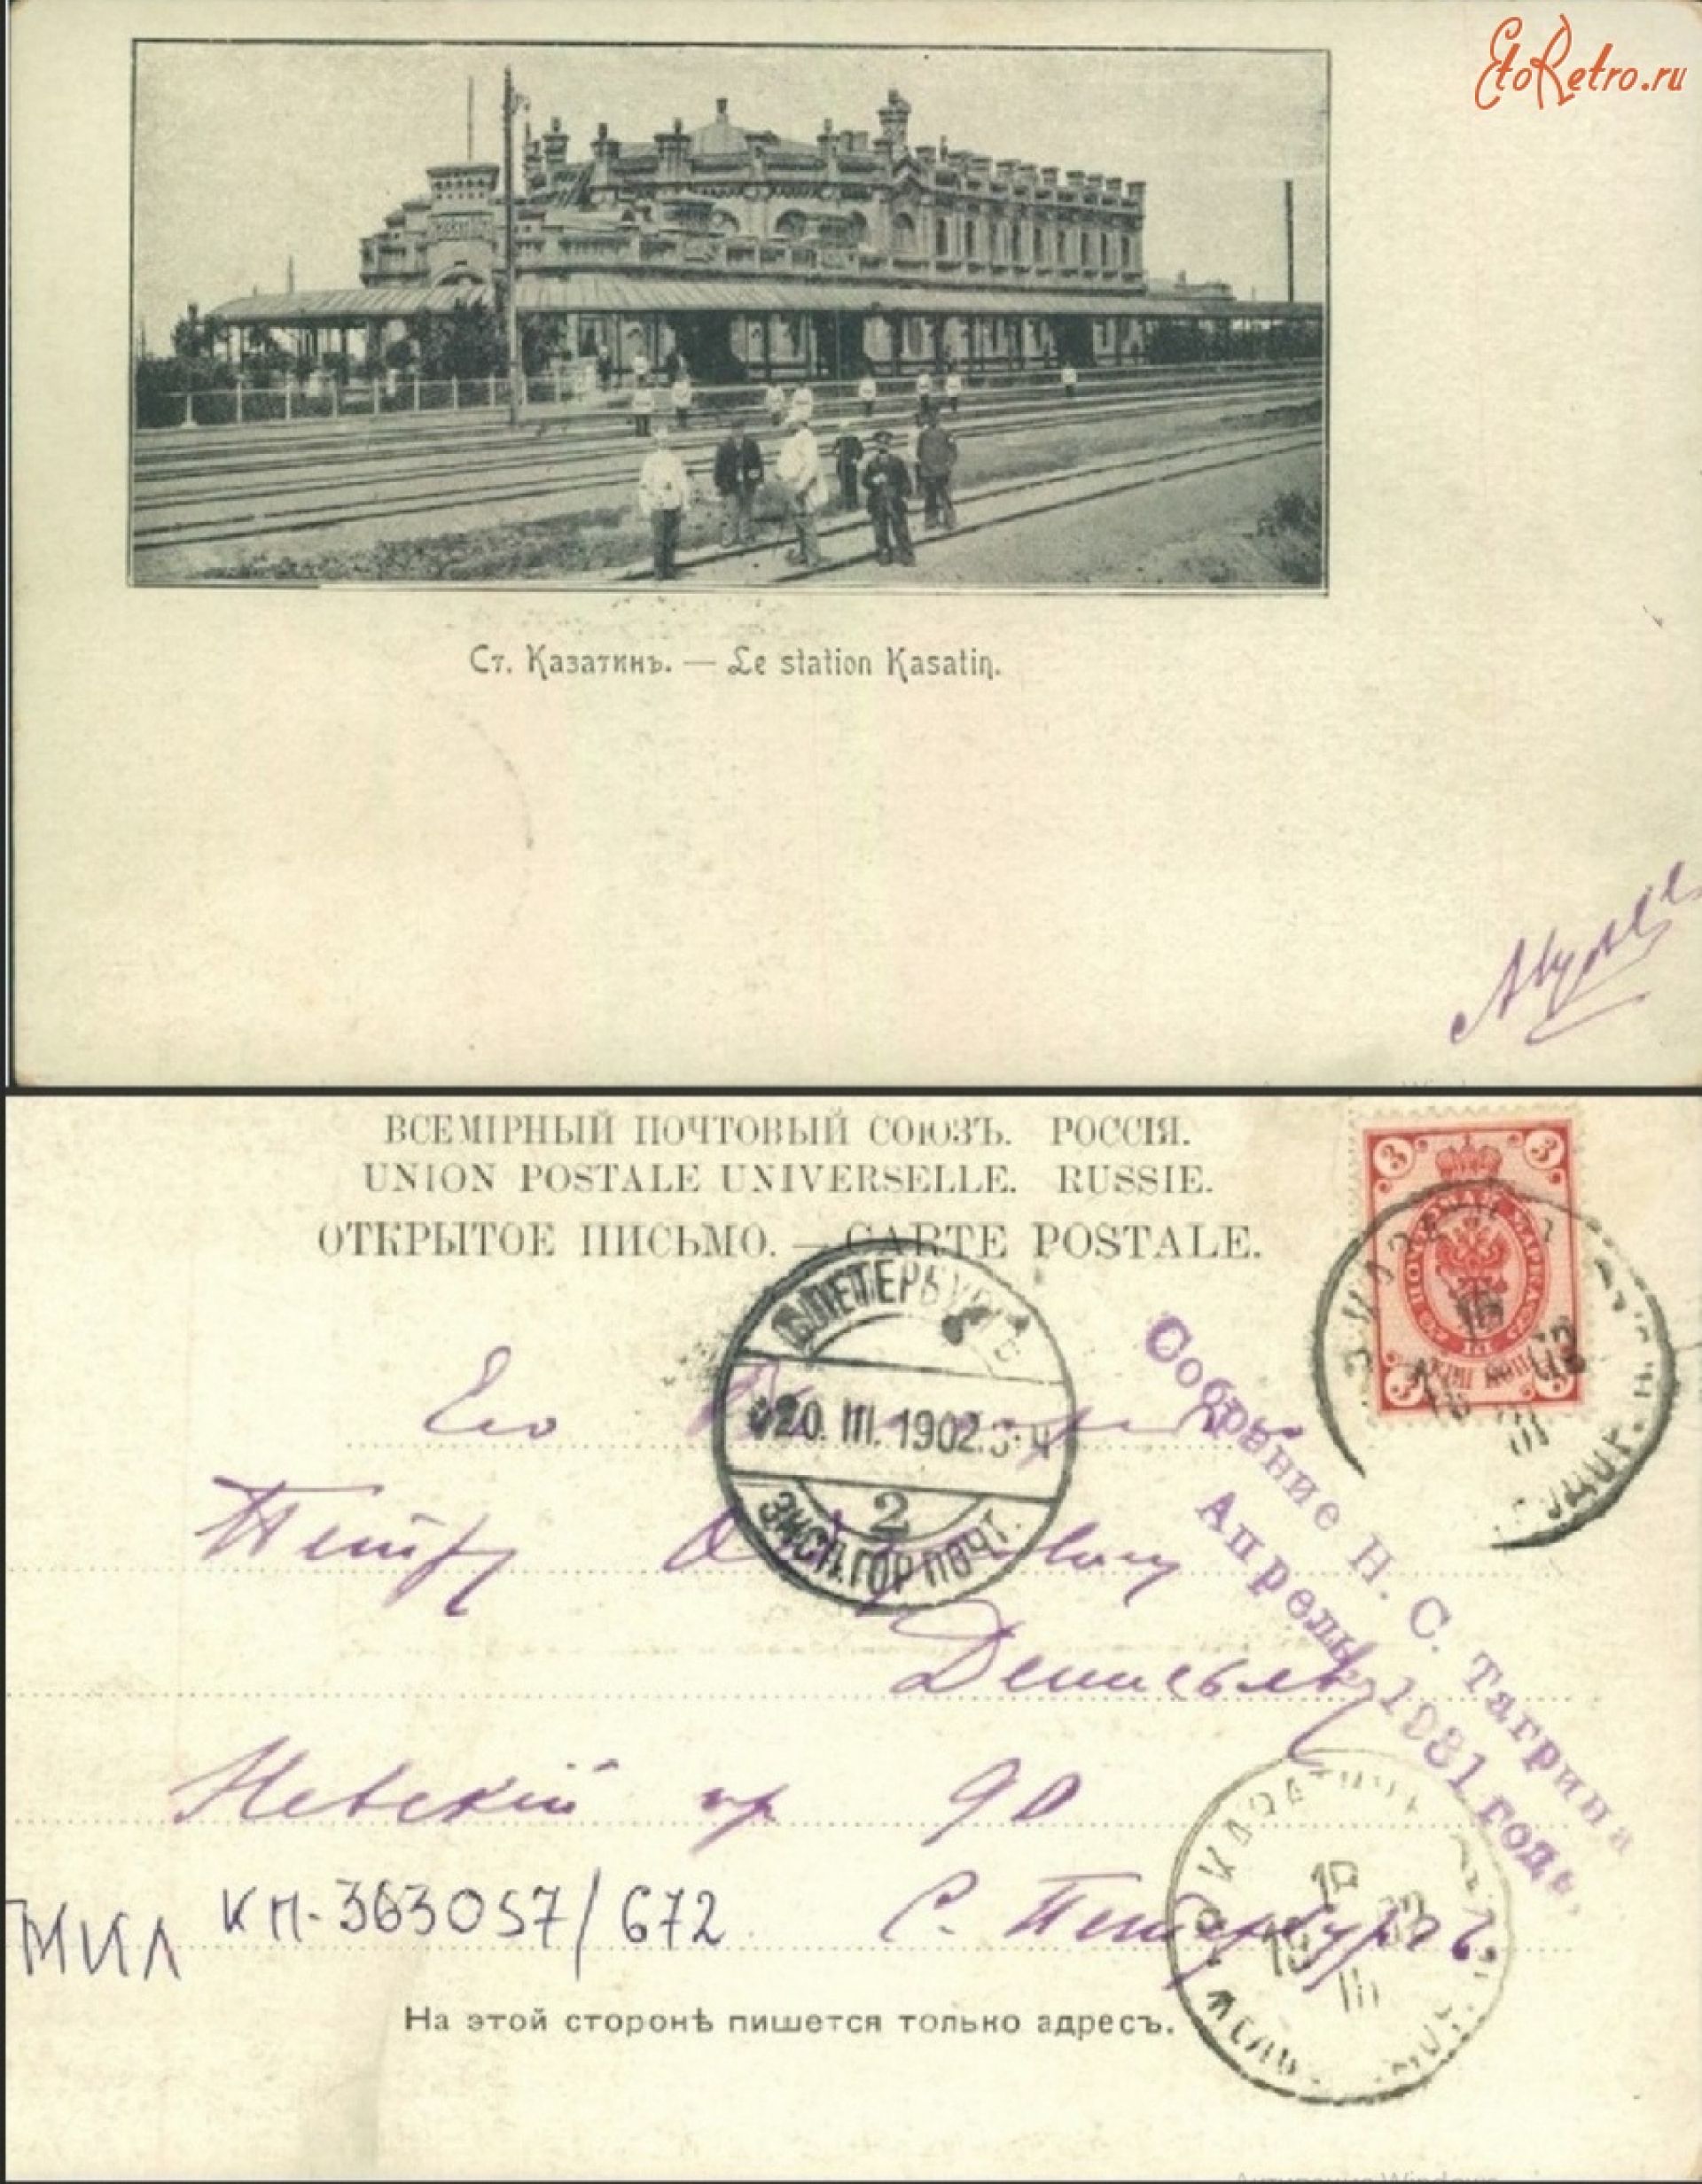 EtoRetro.ru
Ст. Казатинъ. — Le station Kasatin.
ВСЕМІРНЫЙ ПОЧТОВЫЙ СОЮЗЪ. РОССІЯ.
UNION POSTALE UNIVERSELLE. RUSSIE.
ОТКРЫТОЕ ПИСЬМО. — CARTE POSTALE.
3 3
3 3
С.ПЕТЕРБУРГЪ
20. III. 1902.
2
ЭКСП. ГОР ПОЧТ.
Собрание Н. С. Тагрина
Апрель 1931 года.
Его
Петру
Денисьев
Невскій пр 90
С. Петербургъ.
МИЛ КП-363057/672
19
III
На этой сторонѣ пишется только адресъ.